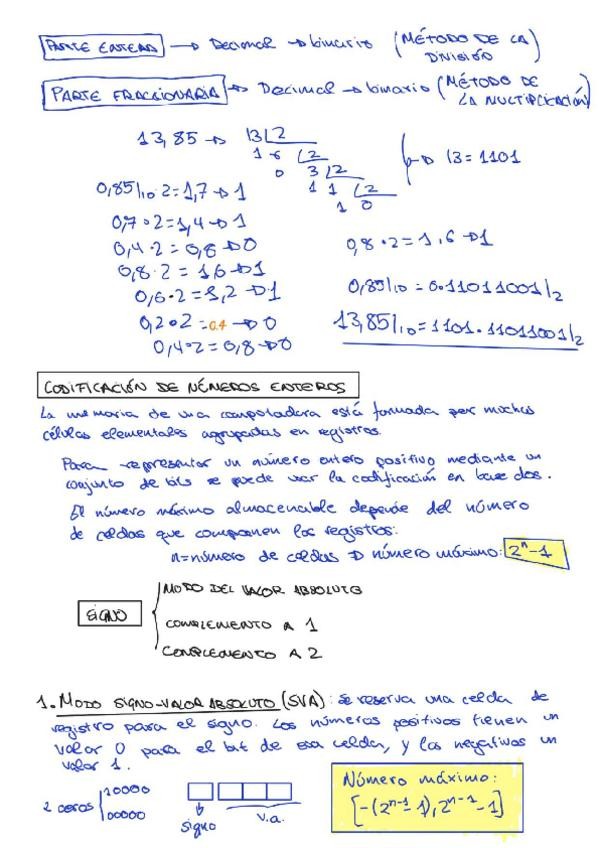 PARTE ENTERA → Decimal → binario (MÉTODO DE LA DIVISIÓN)
PARTE FRACCIONARIA → Decimal → binario (MÉTODO DE LA MULTIPLICACIÓN)
13,85 → 13 | 2
1 6 | 2
0 3 | 2
1 1 | 2
1 0
→ 13 = 1101
0,85/10 · 2 = 1,7 → 1
0,7 · 2 = 1,4 → 1
0,4 · 2 = 0,8 → 0
0,8 · 2 = 1,6 → 1
0,6 · 2 = 1,2 → 1
0,2 · 2 = 0.4 → 0
0,4 · 2 = 0,8 → 0
0,8 · 2 = 1.6 → 1
0,85/10 = 0.11011001/2
13,85/10 = 1101.11011001/2
CODIFICACIÓN DE NÚMEROS ENTEROS
La memoria de una computadora está formada por muchas
células elementales agrupadas en registros.
Para representar un número entero positivo mediante un
conjunto de bits se puede usar la codificación en base dos.
El número máximo almacenable depende del número
de celdas que componen los registros:
n = número de celdas → número máximo: 2^n - 1
SIGNO
MODO DEL VALOR ABSOLUTO
COMPLEMENTO A 1
COMPLEMENTO A 2
1. MODO SIGNO-VALOR ABSOLUTO (SVA): se reserva una celda de
registro para el signo. Los números positivos tienen un
valor 0 para el bit de esa celda, y los negativos un
valor 1.
2 ceros
10000
00000
signo
v.a.
Número máximo:
[-(2^n-1 - 1), 2^n-1 - 1]